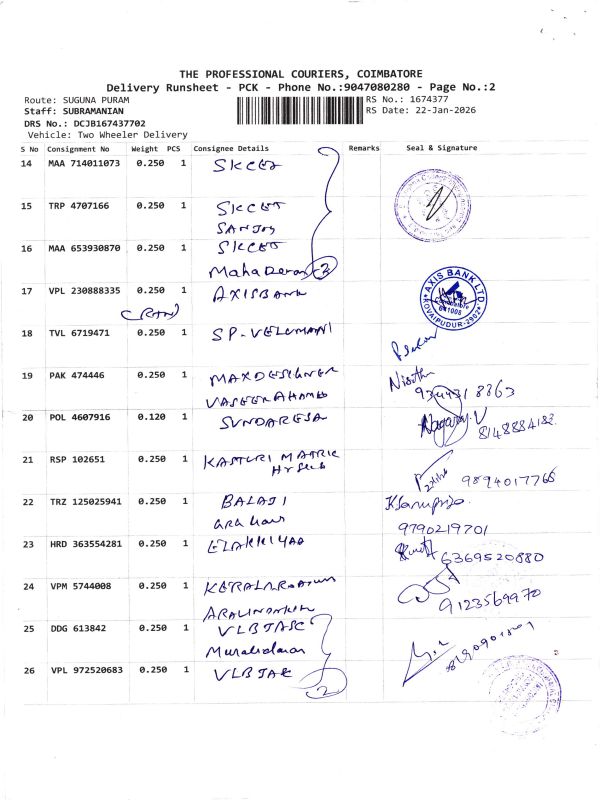 THE PROFESSIONAL COURIERS, COIMBATORE
Delivery Runsheet - PCK - Phone No.:9047080280 - Page No.:2
Route: SUGUNA PURAM
RS No.: 1674377
Staff: SUBRAMANIAN
RS Date: 22-Jan-2026
DRS No.: DCJB167437702
Vehicle: Two Wheeler Delivery
S No Consignment No Weight PCS Consignee Details Remarks Seal & Signature
14 MAA 714011073 0.250 1 SKCET
15 TRP 4707166 0.250 1 SKCET
SANJOY
16 MAA 653930870 0.250 1 SKCET
3
17 VPL 230888335 0.250 1 AXISBANK
AXIS BANK LTD.
KOVAIPUDUR-2902
Coimbatore
641008
18 TVL 6719471 0.250 1 SP-VELUMANI
19 PAK 474446 0.250 1 MAXDESIGNER
VASEERAHAMED
Nisitha
9344318863
20 POL 4607916 0.120 1 SUNDARESA
Nagaraj.V
8148884183
21 RSP 102651 0.250 1 KASTURI MATRIC
Hr Sec
9894017766
22 TRZ 125025941 0.250 1 BALAJI
9790219701
23 HRD 363554281 0.250 1 ELAKKIYAA
6369520880
24 VPM 5744008 0.250 1
9123569970
25 DDG 613842 0.250 1 VLBJASC
26 VPL 972520683 0.250 1 VLBJAK
2